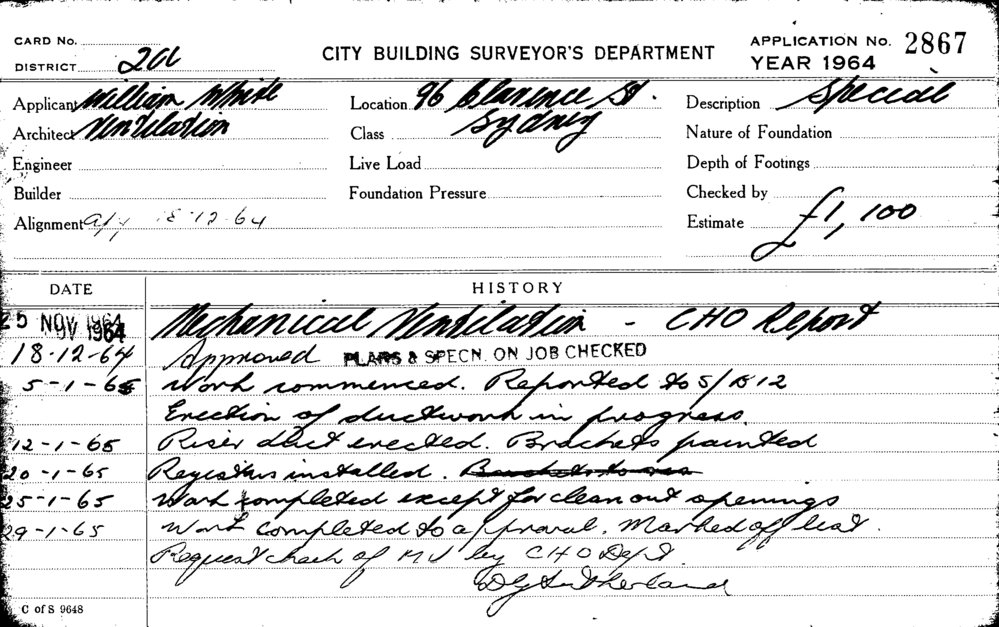 CARD No.
DISTRICT 2a
CITY BUILDING SURVEYOR'S DEPARTMENT
APPLICATION No. 2867
YEAR 1964
Applicant William White
Architect Ventilation
Engineer
Builder
Alignment 18-12-64
Location 96 Clarence St.
Sydney
Class
Live Load
Foundation Pressure
Description Special
Nature of Foundation
Depth of Footings
Checked by
Estimate £1,100
DATE HISTORY
25 NOV 1964 Mechanical Ventilation - CHO Report
18-12-64 Approved PLANS & SPECN. ON JOB CHECKED
5-1-65 Work commenced. Reported to
Erection of ductwork in progress.
12-1-65 Riser duct erected. Brackets painted
20-1-65 Registers installed.
25-1-65 Work completed except for clean out openings
29-1-65 Work completed to approval. Marked off list.
Request check of MV by CHO Dept
D G Sutherland
C of S 9648